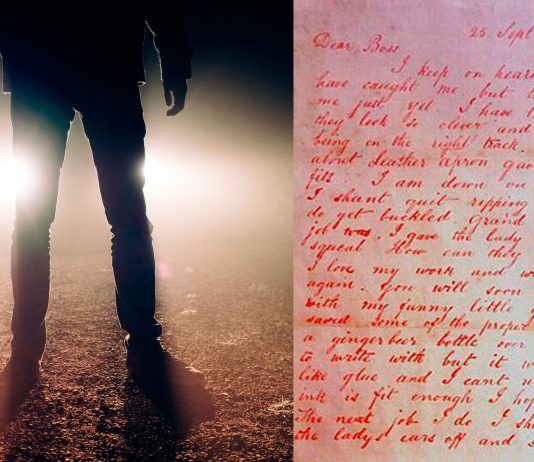 25. Sept
Dear Boss
I keep on hear
have caught me but
me just yet I have
they look so clever and
being on the right track.
about Leather apron gav
fits I am down on
I shant quit ripping
do get buckled. Grand
job was. I gave the lady
squeal How can they
I love my work and w
again. you will soon
with my funny little
saved some of the proper
a ginger beer bottle over
to write with but it w
like glue and I cant u
ink is fit enough I hop
The next job I do I sh
the ladys ears off and s